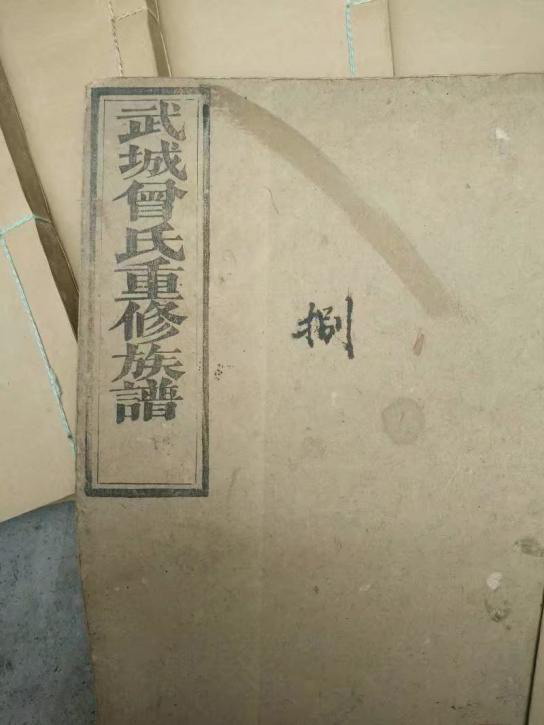 武城曾氏重修族譜
捌